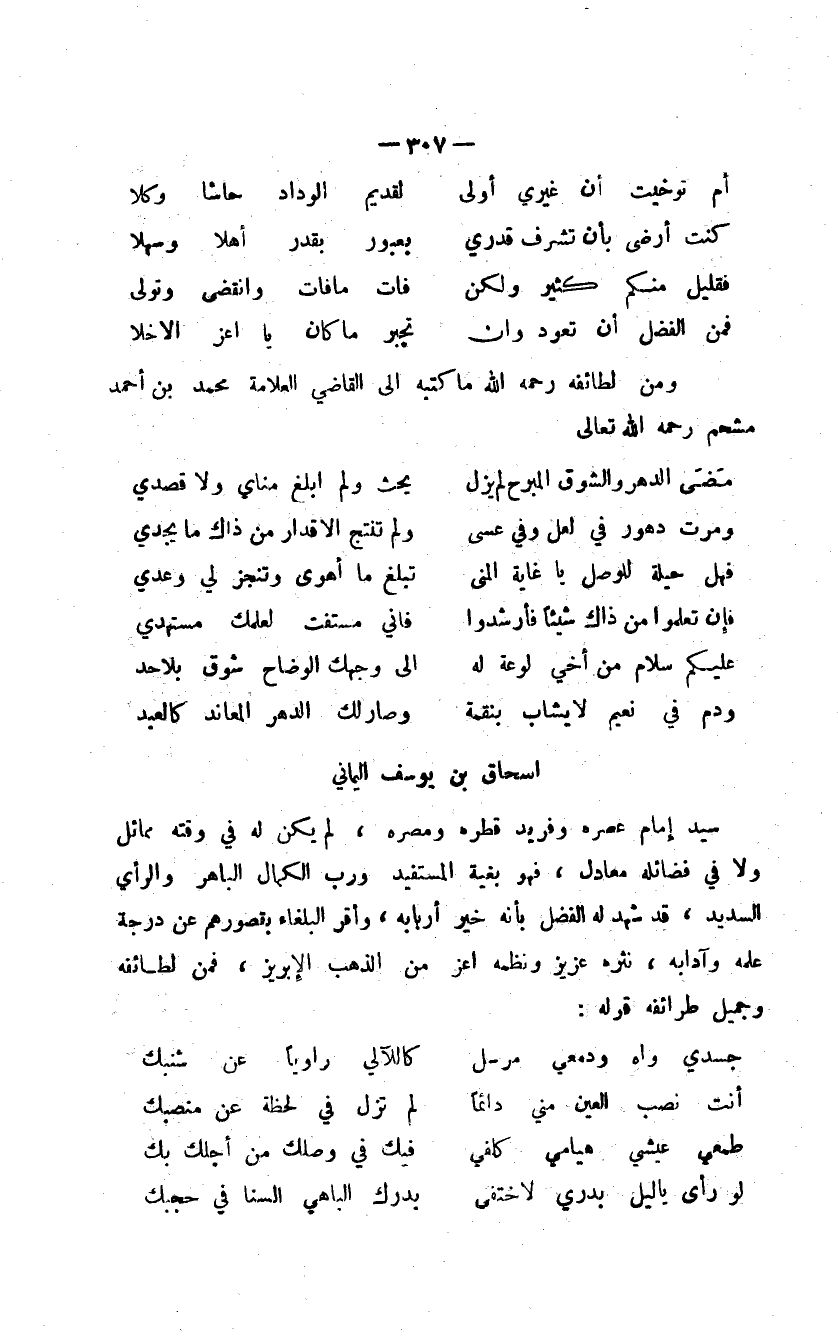 — ٣٠٧ —
أم توخيت أن غيري أولى لقديم الوداد حاشا وكلا
كنت أرضى بأن تشرف قدري بعبور بقدر أهلا وسهلا
فقليل منكم كثير ولكن فات مافات وانقضى وتولى
فمن الفضل أن تعود وان تجبو ماكان يا اعز الاخلا
ومن لطائفه رحمه الله ماكتبه الى القاضي العلامة محمد بن أحمد
مشحم رحمه الله تعالى
متضتى الدهر والشوق المبرح لم يزل يحث ولم ابلغ مناي ولا قصدي
ومرت دهور في لعل وفي عسى ولم تفتج الاقدار من ذاك ما يجدي
فهل حيلة للوصل يا غاية المنى تبلغ ما أهوى وتنجز لي وعدي
فإن تعلموا من ذاك شيئاً فأرشدوا فاني مستفت لعلمك مستهدي
عليكم سلام من أخي لوعة له الى وجهك الوضاح شوق بلاحد
ودم في نعيم لايشاب بنقمة وصارلك الدهر المعاند كالعبد
اسحاق بن يوسف اليماني
سيد إمام عصره وفريد قطره ومصره ، لم يكن له في وقته مماثل
ولا في فضائله معادل ، فهو بغية المستفيد ورب الكمال الباهر والرأي
السديد ، قد شهد له الفضل بأنه خير أربابه ، وأقر البلغاء بقصورهم عن درجة
علمه وآدابه ، نثره عزيز ونظمه اعز من الذهب الإبريز ، فمن لطائفه
وجميل طرائفه قوله :
جسدي واه ودمعي مرسل كاللآلي راوياً عن شنبك
أنت نصب العين مني دائماً لم تزل في لحظة عن منصبك
طمعي عيشي هيامي كلفي فيك في وصلك من أجلك بك
لو رأى ياليل بدري لاختفى بدرك الباهي السنا في حجبك